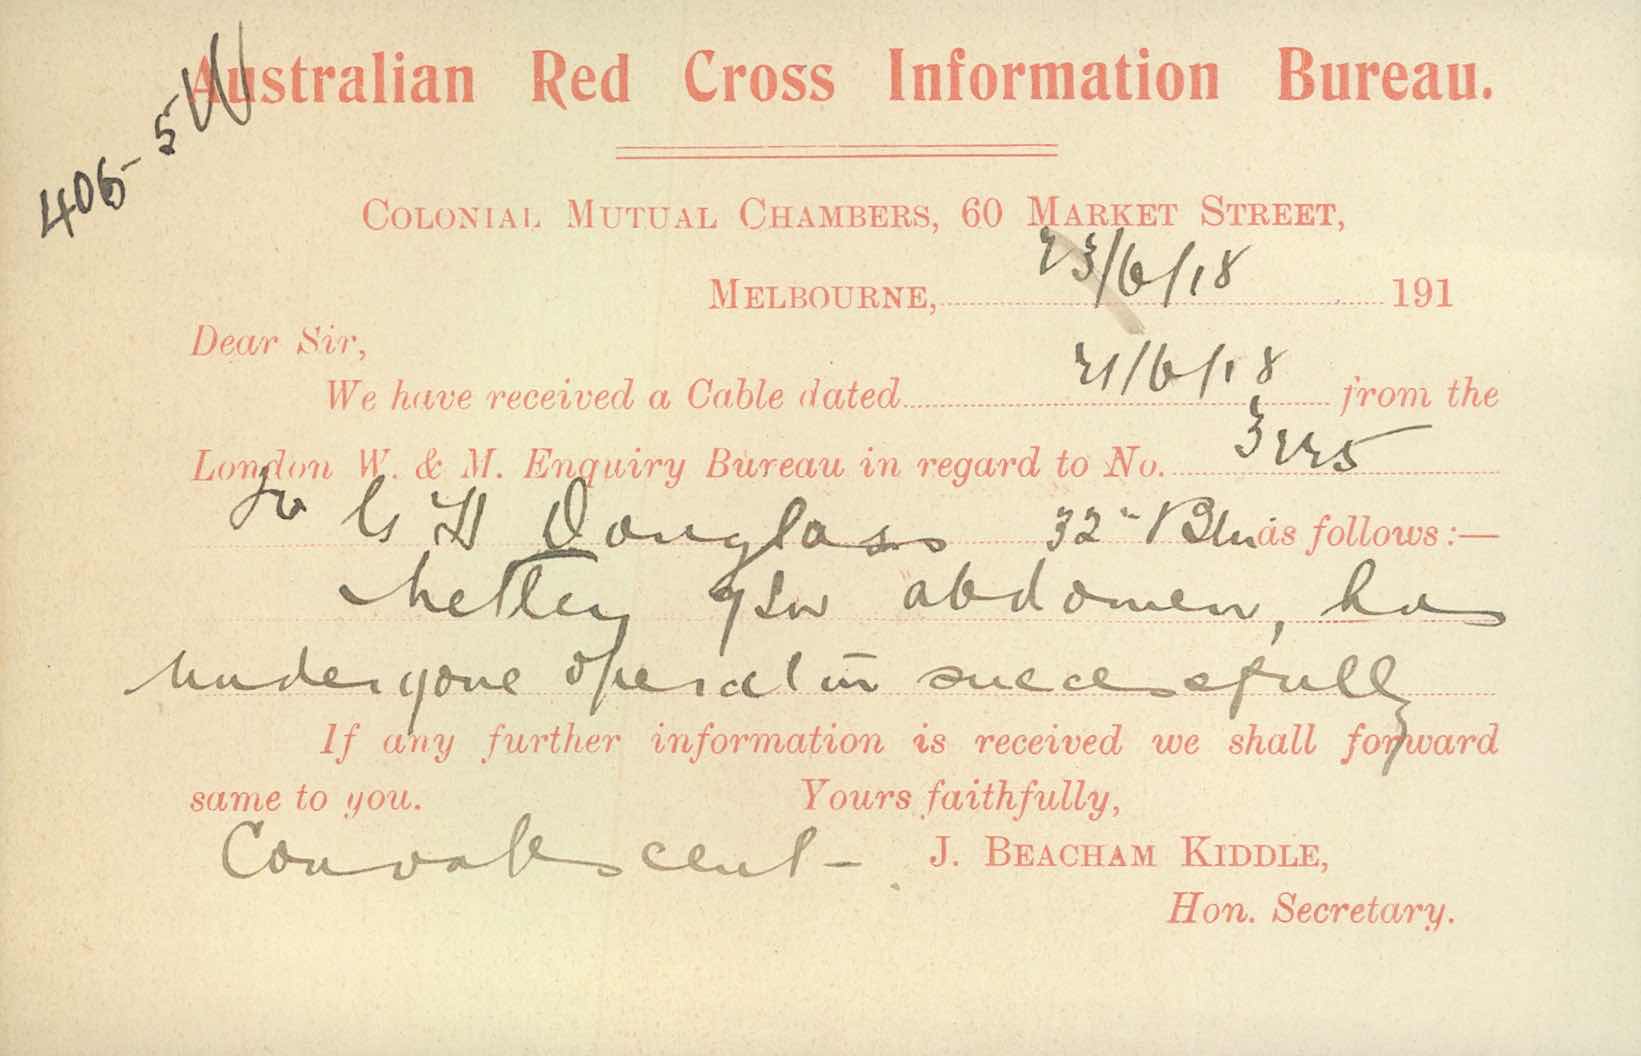 406-5W
Australian Red Cross Information Bureau.
COLONIAL MUTUAL CHAMBERS, 60 MARKET STREET,
MELBOURNE, 23/6/18 191
Dear Sir,
We have received a Cable dated 21/6/18 from the
London W. & M. Enquiry Bureau in regard to No. 3225
G H Douglass 32" Btn as follows:—
Netley gsw abdomen, has
undergone operation successfully
If any further information is received we shall forward
same to you. Yours faithfully,
Convalescent - J. BEACHAM KIDDLE,
Hon. Secretary.